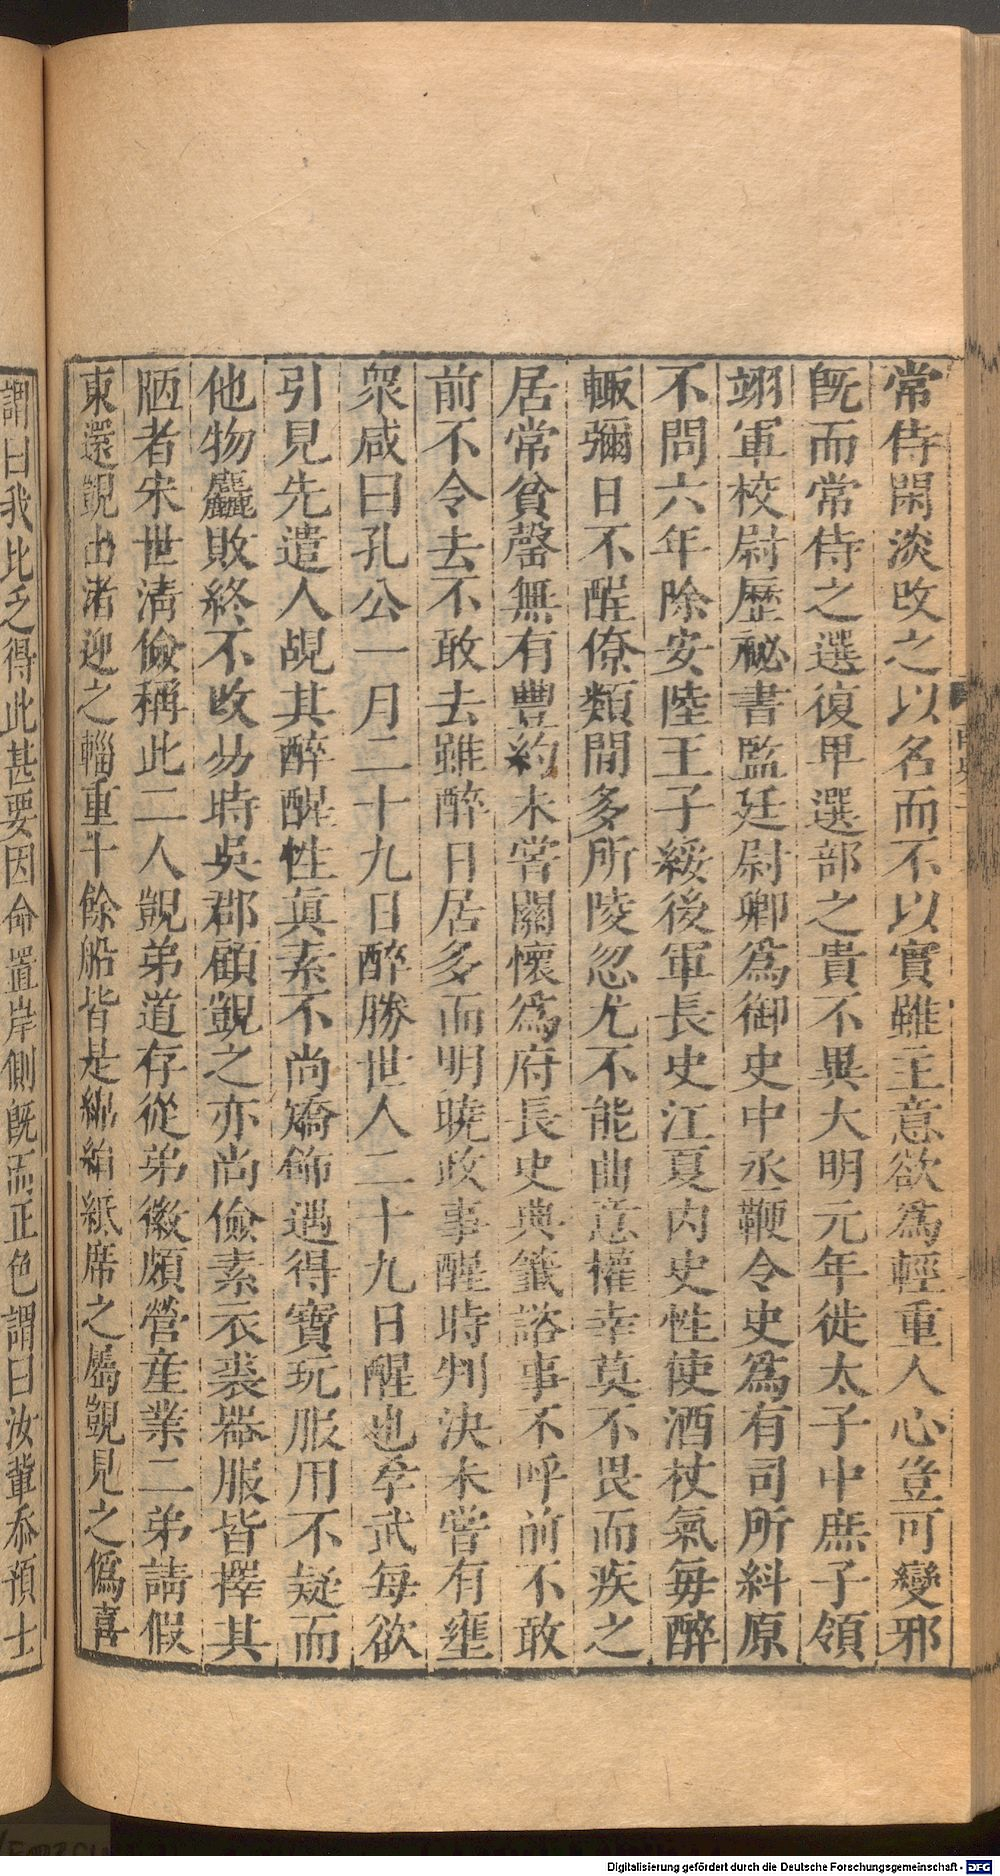 常侍閑淡改之以名而不以實雖主意欲爲輕重人心豈可變邪
旣而常侍之選復甲選部之貴不異大明元年徙太子中庶子領
翊軍校尉歷祕書監廷尉卿爲御史中丞鞭令史爲有司所糾原
不問六年除安陸王子綏後軍長史江夏內史性使酒杖氣每醉
輙彌日不醒僚類間多所陵忽尤不能曲意權幸莫不畏而疾之
居常貧罄無有豐約未嘗關懷爲府長史典籤諮事不呼前不敢
前不令去不敢去雖醉日居多而明曉政事醒時判決未嘗有壅
衆咸曰孔公一月二十九日醉勝世人二十九日醒也孝武每欲
引見先遣人覘其醉醒性眞素不尚矯飾遇得寶玩服用不疑而
他物麤敗終不改易時吳郡顧覬之亦尚儉素衣裘器服皆擇其
陋者宋世淸儉稱此二人覬弟道存從弟徽頗營産業二弟請假
東還覬出渚迎之輜重十餘船皆是綿絹紙席之屬覬見之僞喜
謂曰我比乏得此甚要因命置岸側旣而正色謂曰汝輩忝預士
Digitalisierung gefördert durch die Deutsche Forschungsgemeinschaft - DFG